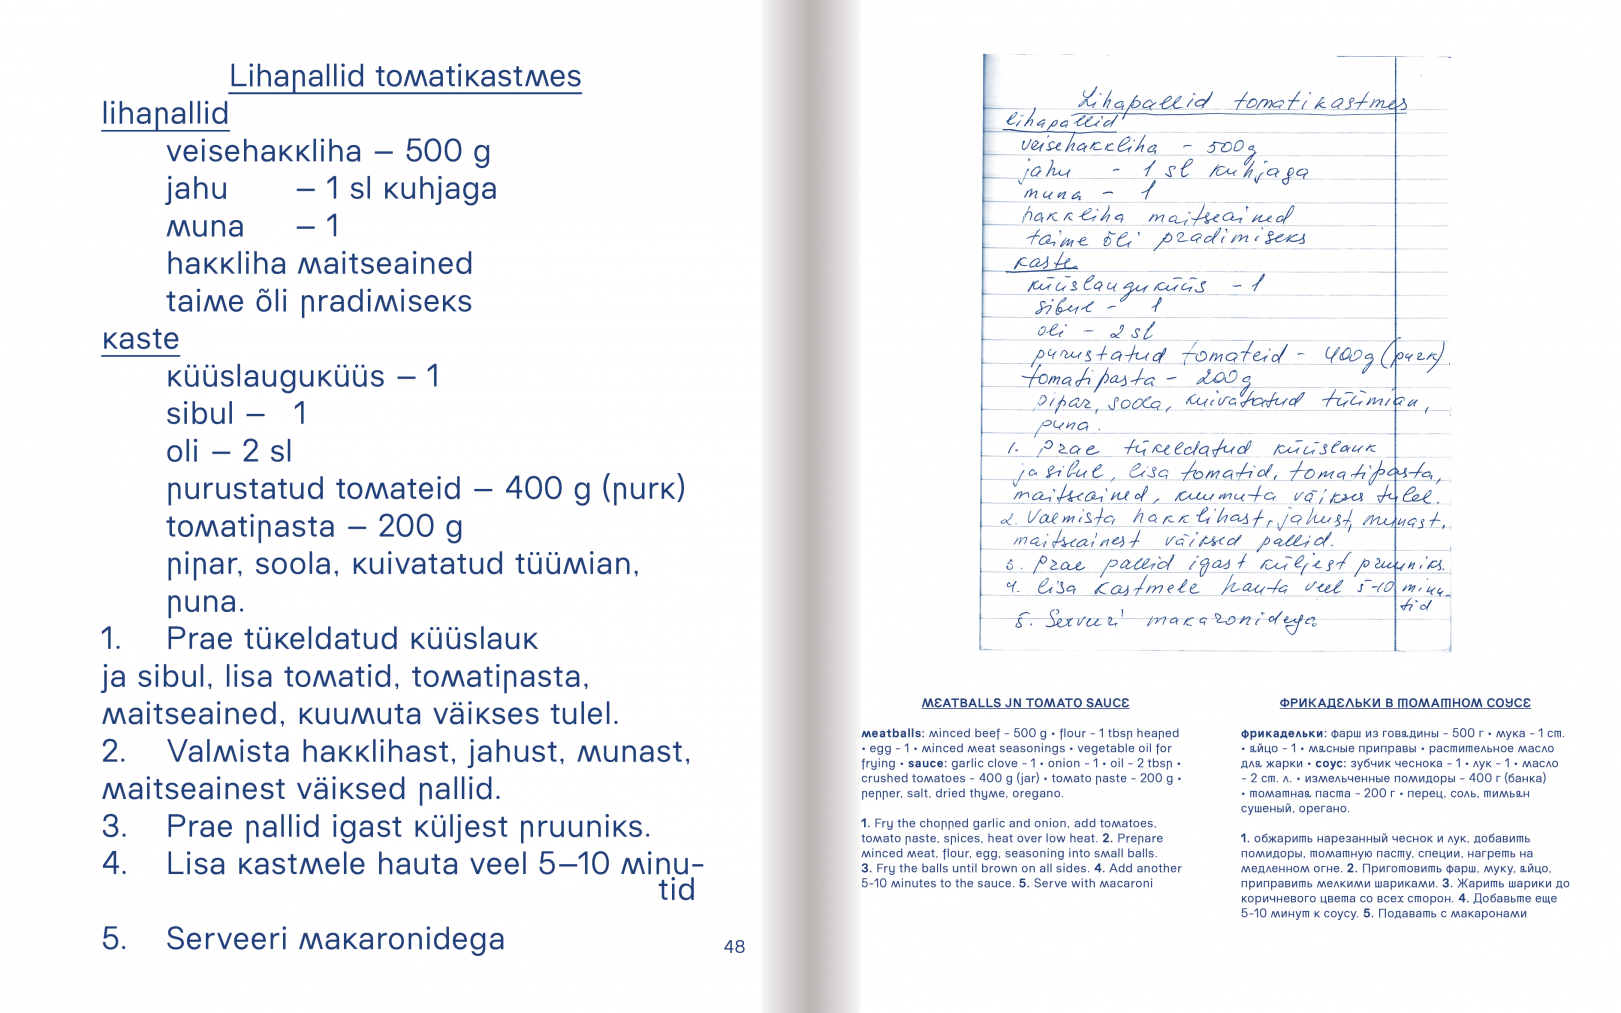 Lihapallid tomatikastmes
lihapallid
veisehakkliha – 500 g
jahu – 1 sl kuhjaga
muna – 1
hakkliha maitseained
taime õli pradimiseks
kaste
küüslauguküüs – 1
sibul – 1
oli – 2 sl
purustatud tomateid – 400 g (purk)
tomatipasta – 200 g
pipar, soola, kuivatatud tüümian,
puna.
1. Prae tükeldatud küüslauk
ja sibul, lisa tomatid, tomatipasta,
maitseained, kuumuta väikses tulel.
2. Valmista hakklihast, jahust, munast,
maitseainest väiksed pallid.
3. Prae pallid igast küljest pruuniks.
4. Lisa kastmele hauta veel 5–10 minu-
tid
5. Serveeri makaronidega
48
Lihapallid tomatikastmes
lihapallid
veisehakkliha – 500g
jahu – 1 sl kuhjaga
muna – 1
hakkliha maitseained
taime õli pradimiseks
kaste
küüslauguküüs – 1
sibul – 1
oli – 2 sl
purustatud tomateid – 400g (purk)
tomatipasta – 200g
pipar, soola, kuivatatud tüümian,
puna.
1. Prae tükeldatud küüslauk
ja sibul, lisa tomatid, tomatipasta,
maitseained, kuumuta väikses tulel.
2. Valmista hakklihast, jahust, munast,
maitseainest väiksed pallid.
3. Prae pallid igast küljest pruuniks.
4. lisa kastmele hauta veel 5-10 minu-
tid
5. Serveeri makaronidega
MEATBALLS IN TOMATO SAUCE
meatballs: minced beef - 500 g • flour - 1 tbsp heaped
• egg - 1 • minced meat seasonings • vegetable oil for
frying • sauce: garlic clove - 1 • onion - 1 • oil - 2 tbsp •
crushed tomatoes - 400 g (jar) • tomato paste - 200 g •
pepper, salt, dried thyme, oregano.
1. Fry the chopped garlic and onion, add tomatoes,
tomato paste, spices, heat over low heat. 2. Prepare
minced meat, flour, egg, seasoning into small balls.
3. Fry the balls until brown on all sides. 4. Add another
5-10 minutes to the sauce. 5. Serve with macaroni
ФРИКАДЕЛЬКИ В ТОМАТНОМ СОУСЕ
фрикадельки: фарш из говядины - 500 г • мука - 1 ст.
• яйцо - 1 • мясные приправы • растительное масло
для жарки • соус: зубчик чеснока - 1 • лук - 1 • масло
- 2 ст. л. • измельченные помидоры - 400 г (банка)
• томатная паста - 200 г • перец, соль, тимьян
сушеный, орегано.
1. обжарить нарезанный чеснок и лук, добавить
помидоры, томатную пасту, специи, нагреть на
медленном огне. 2. Приготовить фарш, муку, яйцо,
приправить мелкими шариками. 3. Жарить шарики до
коричневого цвета со всех сторон. 4. Добавьте еще
5-10 минут к соусу. 5. Подавать с макаронами